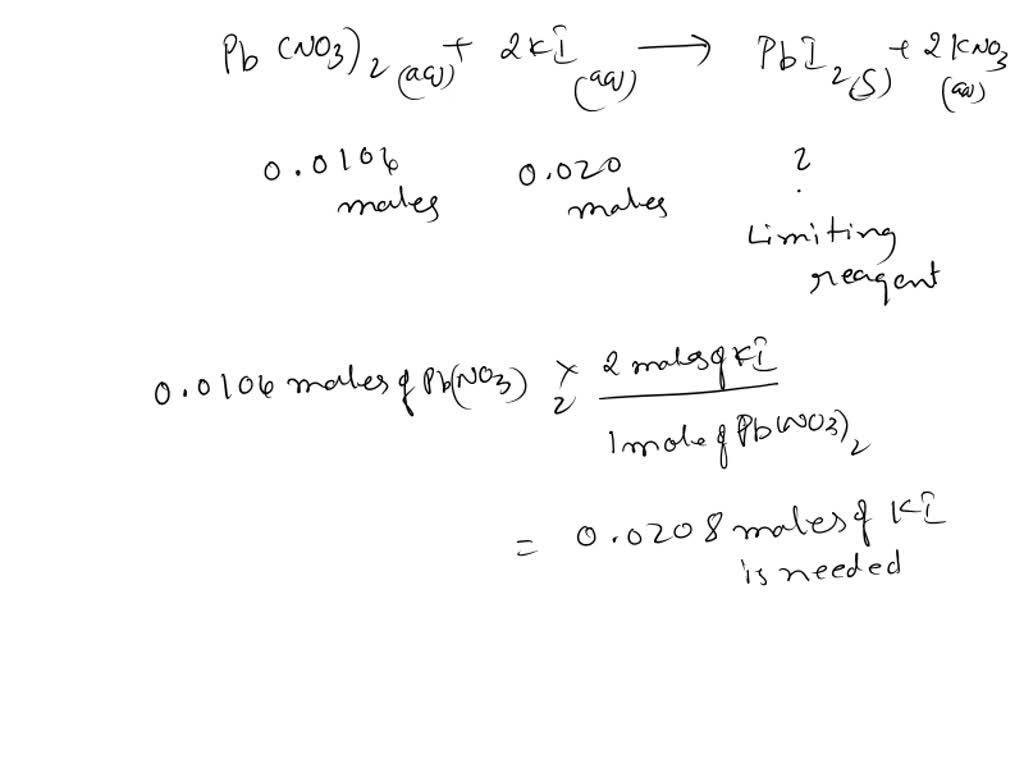 Pb(NO3)2(aq) + 2KI(aq) → PbI2(s) + 2KNO3(aq)
0.0106 moles 0.020 moles ?
Limiting reagent
0.0106 moles of Pb(NO3)2 × 2 moles of KI / 1 mole of Pb(NO3)2
= 0.0208 moles of KI
is needed